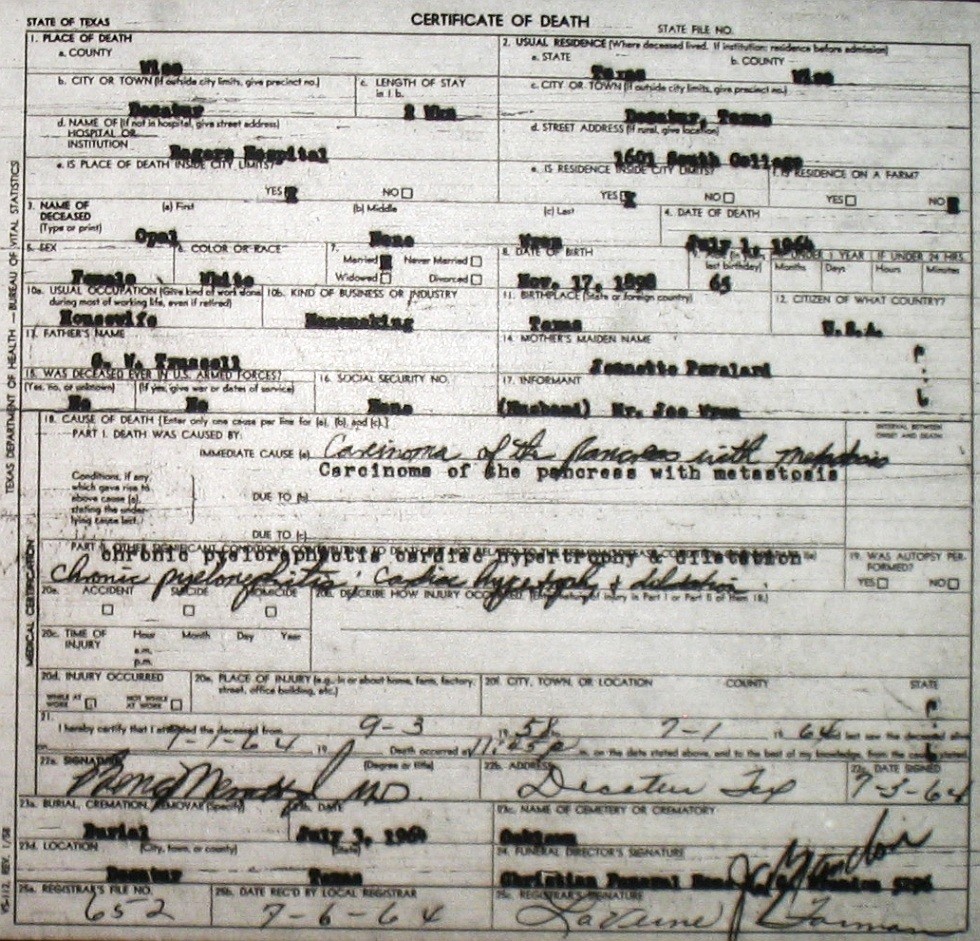 STATE OF TEXAS
CERTIFICATE OF DEATH
STATE FILE NO.
1. PLACE OF DEATH
a. COUNTY
Wise
2. USUAL RESIDENCE (Where deceased lived. If institution: residence before admission)
a. STATE
Texas
b. COUNTY
Wise
b. CITY OR TOWN (If outside city limits, give precinct no.)
Decatur
c. LENGTH OF STAY
in 1 b.
2 Wks
c. CITY OR TOWN (If outside city limits, give precinct no.)
Decatur, Texas
d. NAME OF (If not in hospital, give street address)
HOSPITAL OR
INSTITUTION
Rogers Hospital
d. STREET ADDRESS (If rural, give location)
1601 South College
e. IS PLACE OF DEATH INSIDE CITY LIMITS?
YES NO
e. IS RESIDENCE INSIDE CITY LIMITS?
YES NO
f. IS RESIDENCE ON A FARM?
YES NO
3. NAME OF
DECEASED
(Type or print)
(a) First
Opal
(b) Middle
None
(c) Last
4. DATE OF DEATH
July 1, 1964
5. SEX
Female
6. COLOR OR RACE
White
7.
Married Never Married
Widowed Divorced
8. DATE OF BIRTH
Nov. 17, 1898
last birthday)
65
IF UNDER 1 YEAR
Months Days
IF UNDER 24 HRS.
Hours Minutes
10a. USUAL OCCUPATION (Give kind of work done
during most of working life, even if retired)
Housewife
10b. KIND OF BUSINESS OR INDUSTRY
Homemaking
11. BIRTHPLACE (State or foreign country)
Texas
12. CITIZEN OF WHAT COUNTRY?
U.S.A.
13. FATHER'S NAME
G. W. Trussell
14. MOTHER'S MAIDEN NAME
Jeanette
15. WAS DECEASED EVER IN U.S. ARMED FORCES?
(Yes, no, or unknown)
No
(If yes, give war or dates of service)
No
16. SOCIAL SECURITY NO.
None
17. INFORMANT
(Husband) Mr. Joe
18. CAUSE OF DEATH [Enter only one cause per line for (a), (b), and (c).]
PART I. DEATH WAS CAUSED BY:
INTERVAL BETWEEN
ONSET AND DEATH
IMMEDIATE CAUSE (a) Carcinoma of the Pancreas with metastasis
Carcinoma of the pancreas with metastosis
Conditions, if any
which gave rise to
above cause (a),
stating the under-
lying cause last.
DUE TO (b)
DUE TO (c)
chronic pyeloraphoutis cardiac hypertrophy & diletation
Chronic pyelonephritis; Cardiac hypertrophy & dilatation
19. WAS AUTOPSY PER-
FORMED?
YES NO
20a. ACCIDENT SUICIDE HOMICIDE
20b. DESCRIBE HOW INJURY OCCURRED. (Enter nature of injury in Part I or Part II of item 18.)
20c. TIME OF
INJURY
Hour Month Day Year
a.m.
p.m.
20d. INJURY OCCURRED
WHILE AT
WORK
NOT WHILE
AT WORK
20e. PLACE OF INJURY (e.g., in or about home, farm, factory,
street, office building, etc.)
20f. CITY, TOWN, OR LOCATION
COUNTY
STATE
21.
I hereby certify that I attended the deceased from 9-3 19 58 7-1 19 64 last saw the deceased alive
on 7-1-64 19 Death occurred at m. on the date stated above, and to the best of my knowledge, from the causes stated.
22a. SIGNATURE
(Degree or title)
MD.
22b. ADDRESS
Decatur Tex
22c. DATE SIGNED
7-3-64
23a. BURIAL, CREMATION, REMOVAL (Specify)
Burial
23b. DATE
July 3, 1964
23c. NAME OF CEMETERY OR CREMATORY
Oaklawn
23d. LOCATION
(City, town, or county)
(State)
Decatur
Texas
24. FUNERAL DIRECTOR'S SIGNATURE
Christian Funeral Home
25a. REGISTRAR'S FILE NO.
652
25b. DATE REC'D BY LOCAL REGISTRAR
7-6-64
25c. REGISTRAR'S SIGNATURE
LaVerne
TEXAS DEPARTMENT OF HEALTH — BUREAU OF VITAL STATISTICS
MEDICAL CERTIFICATION
VS-112, REV. 1/58